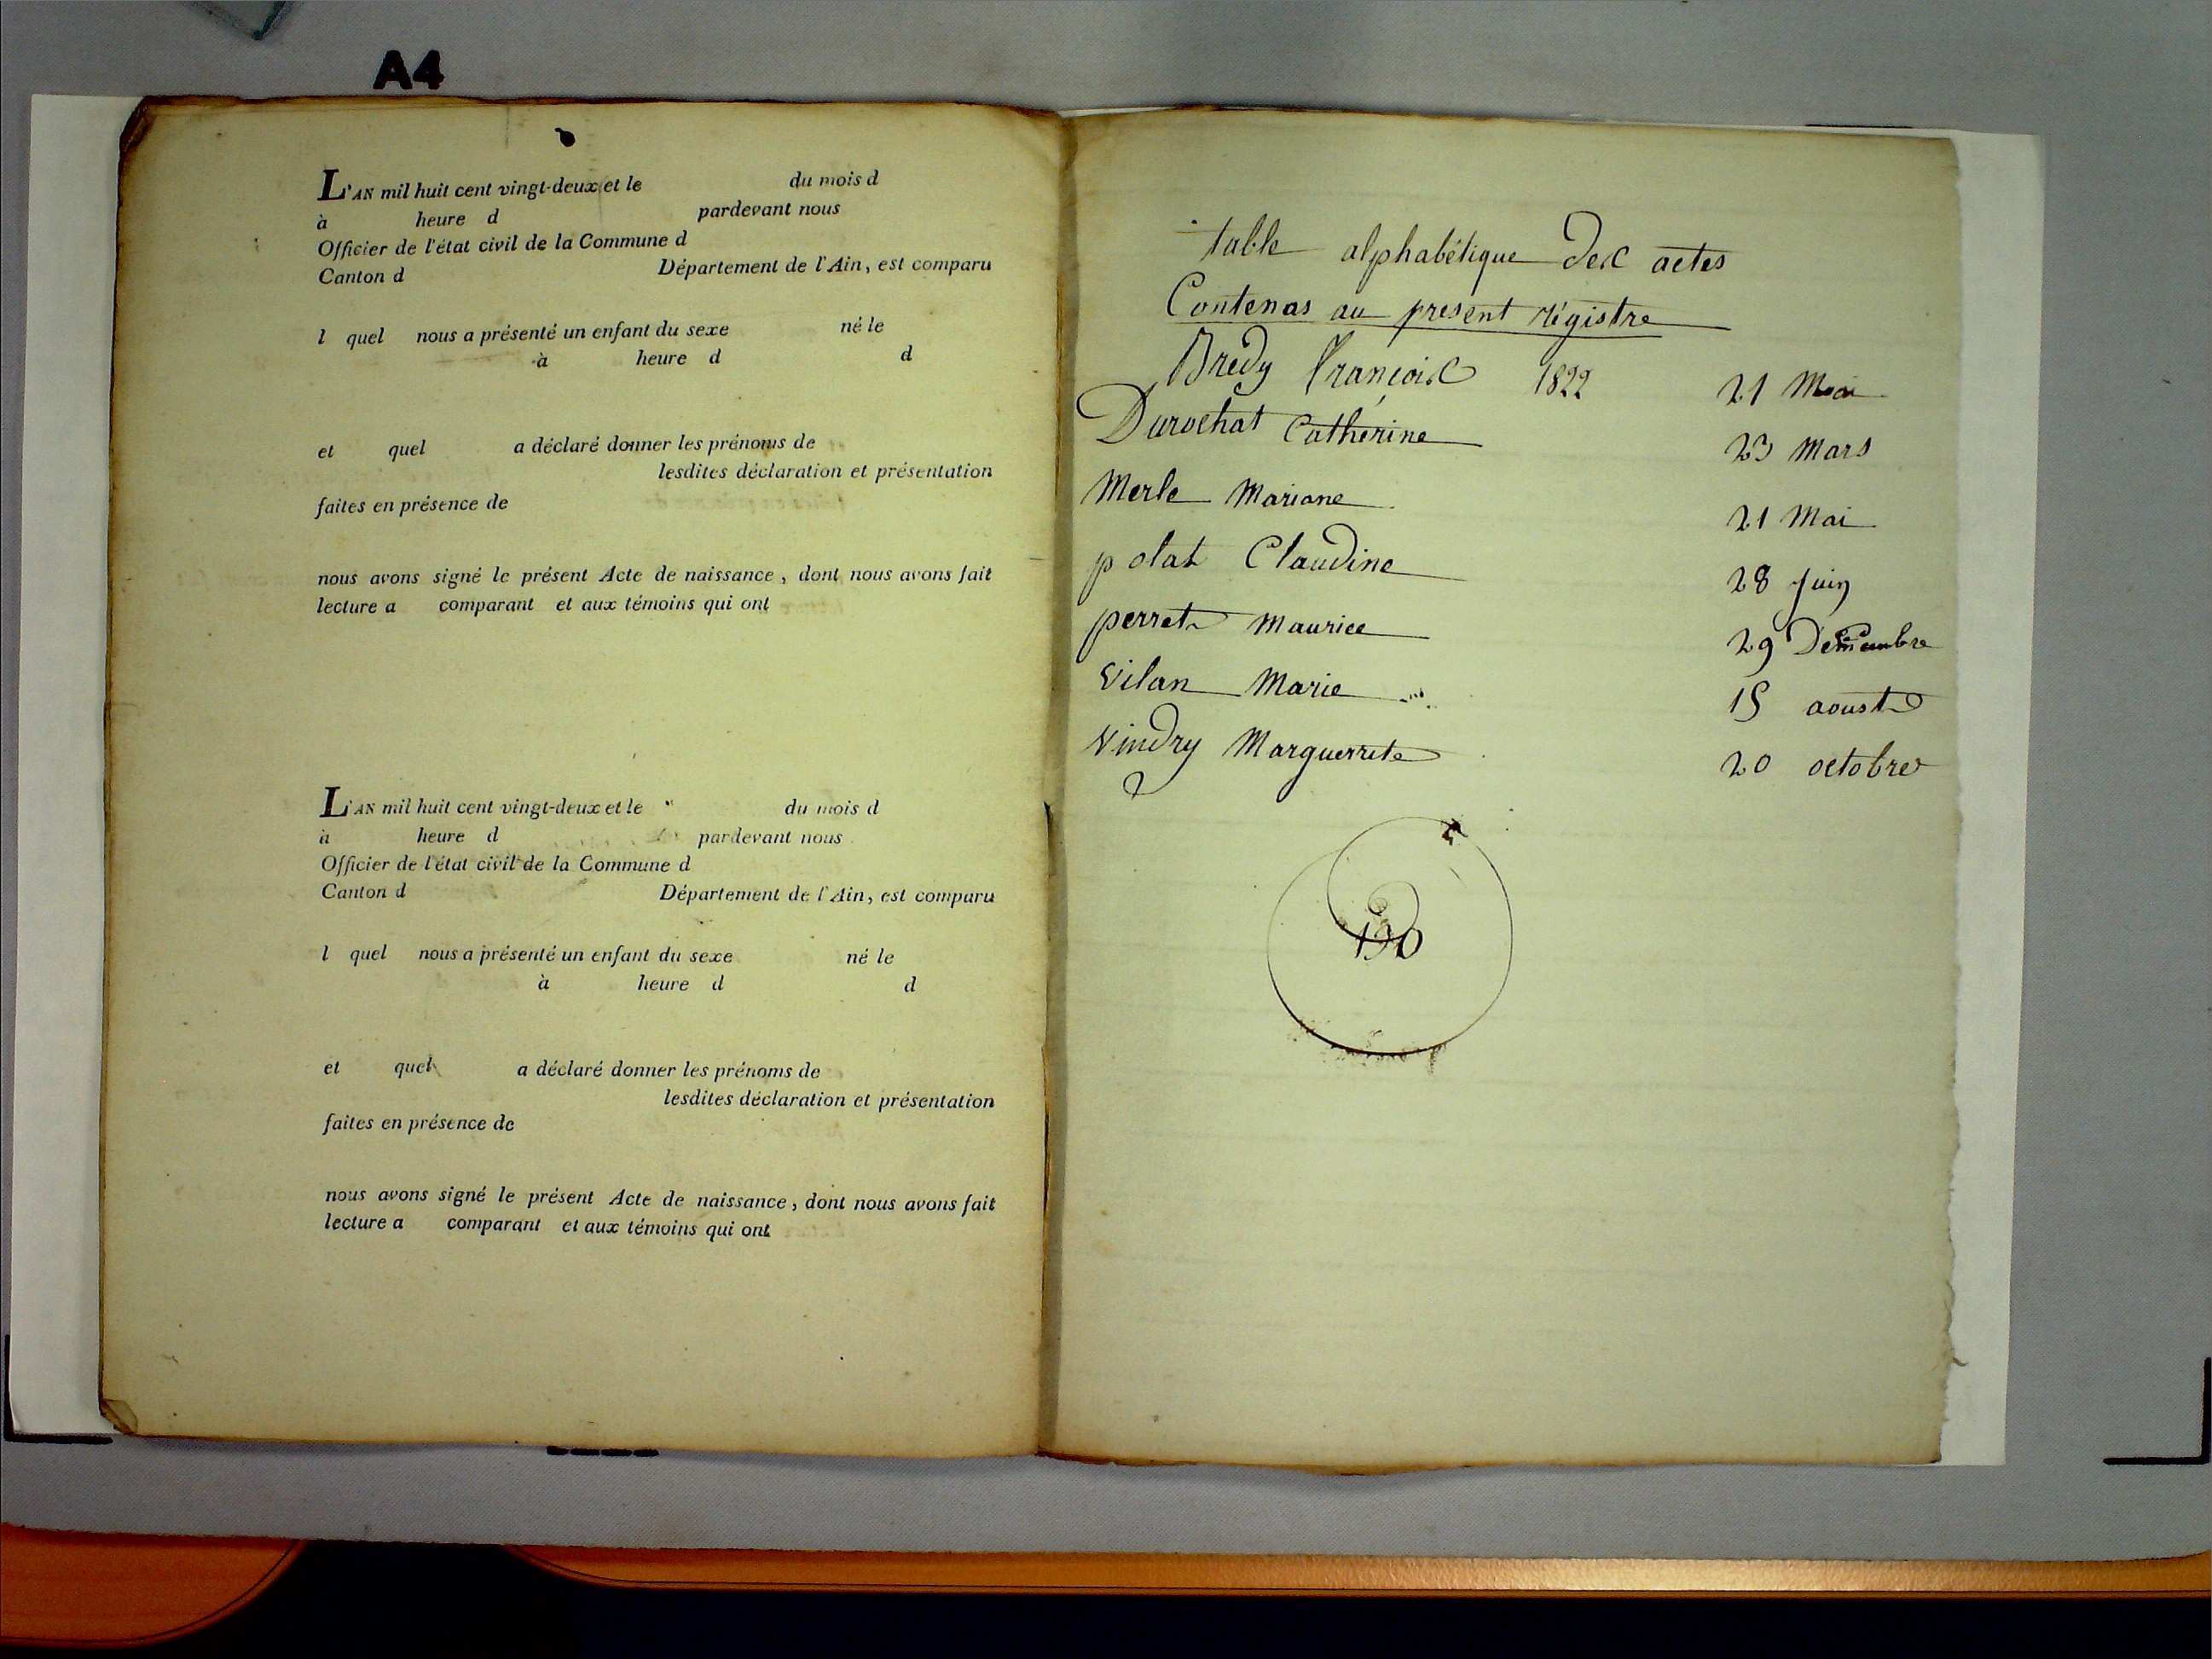 A4
L'AN mil huit cent vingt-deux et le du mois d
à heure d pardevant nous
Officier de l'état civil de la Commune d
Canton d Département de l'Ain, est comparu
l quel nous a présenté un enfant du sexe né le
à heure d d
et quel a déclaré donner les prénoms de
lesdites déclaration et présentation
faites en présence de
nous avons signé le présent Acte de naissance, dont nous avons fait
lecture a comparant et aux témoins qui ont
L'AN mil huit cent vingt-deux et le du mois d
à heure d pardevant nous
Officier de l'état civil de la Commune d
Canton d Département de l'Ain, est comparu
l quel nous a présenté un enfant du sexe né le
à heure d d
et quel a déclaré donner les prénoms de
lesdites déclaration et présentation
faites en présence de
nous avons signé le présent Acte de naissance, dont nous avons fait
lecture a comparant et aux témoins qui ont
table alphabétique des actes
Contenas au present régistre
Bredy François 1822 21 Mai
Durochat Catherine 23 Mars
Merle Mariane 21 Mai
polat Claudine 28 Juin
perret Maurice 29
Vilan Marie 15 aoust
Vindry Marguerrite 20 octobre